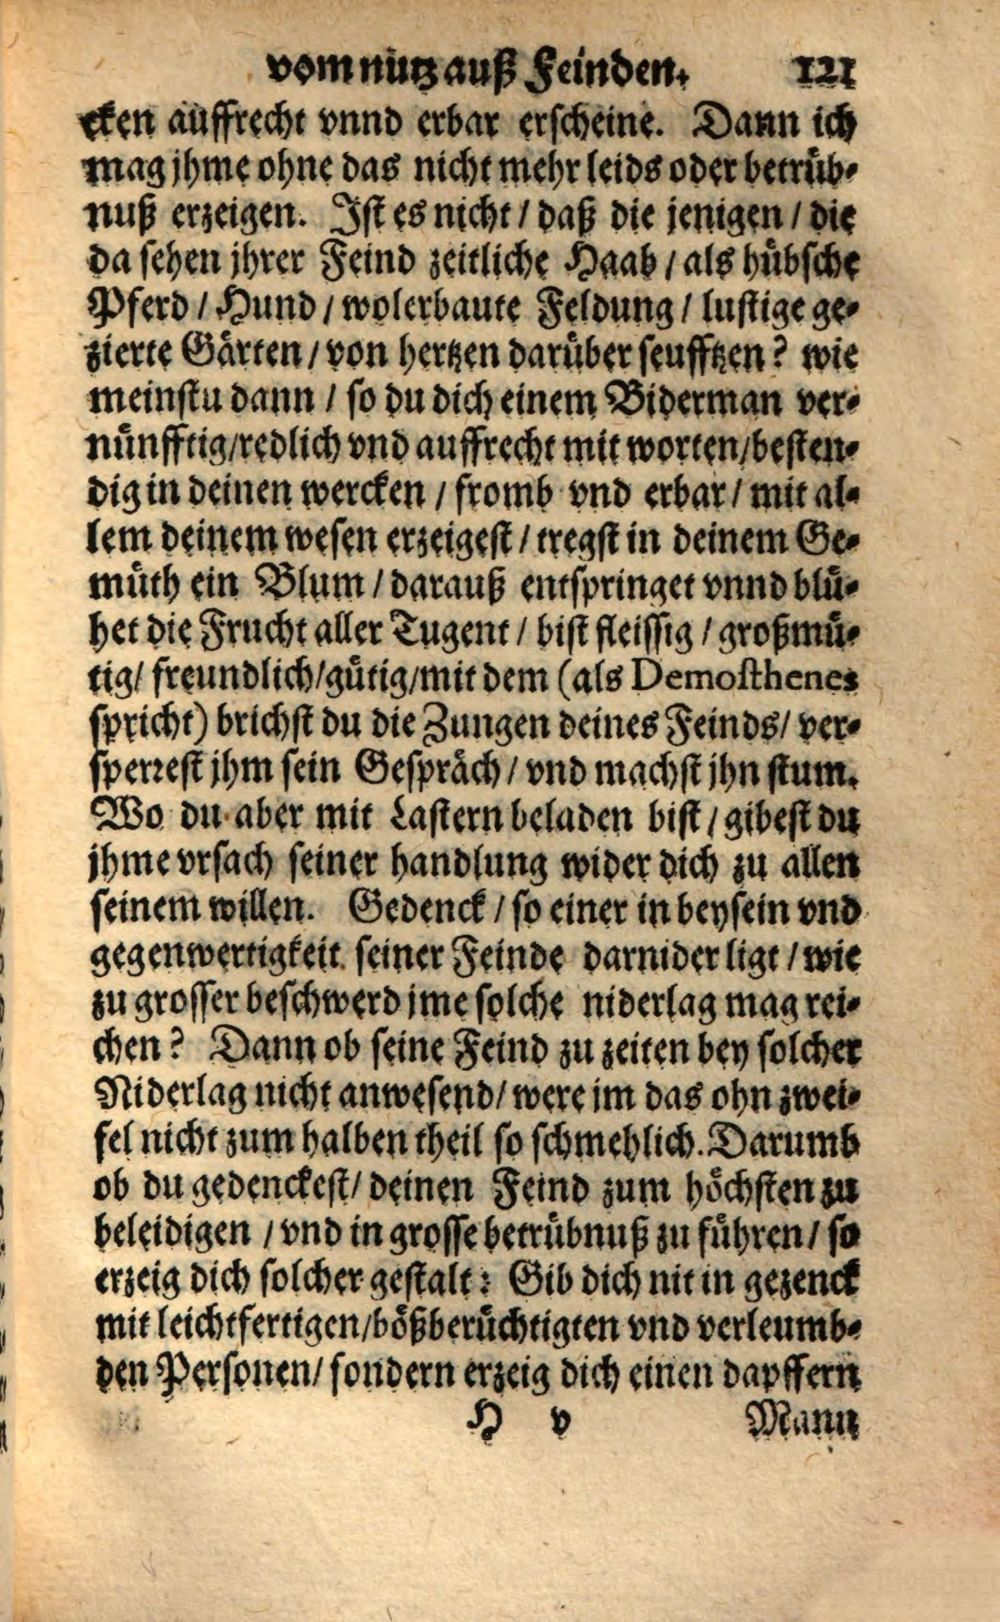 vom nutz auß Feinden. 121
cken auffrecht vnnd erbar erscheine. Dann ich
mag jhme ohne das nicht mehr leids oder betrüb-
nuß erzeigen. Ist es nicht / daß die jenigen / die
da sehen jhrer Feind zeitliche Haab / als hübsche
Pferd / Hund / wolerbaute Feldung / lustige ge-
zierte Gärten / von hertzen darüber seufftzen? wie
meinstu dann / so du dich einem Biderman ver-
nünfftig / redlich vnd auffrecht mit worten / besten-
dig in deinen wercken / fromb vnd erbar / mit al-
lem deinem wesen erzeigest / tregst in deinem Ge-
müth ein Blum / darauß entspringet vnnd blü-
het die Frucht aller Tugent / bist fleissig / großmü-
tig / freundlich / gütig / mit dem (als Demosthenes
spricht) brichst du die Zungen deines Feinds / ver-
sperrest jhm sein Gespräch / vnd machst jhn stum.
Wo du aber mit Lastern beladen bist / gibest du
jhme vrsach seiner handlung wider dich zu allen
seinem willen. Gedenck / so einer in beysein vnd
gegenwertigkeit seiner Feinde darnider ligt / wie
zu grosser beschwerd jme solche niderlag mag rei-
chen? Dann ob seine Feind zu zeiten bey solcher
Niderlag nicht anwesend / were im das ohn zwei-
fel nicht zum halben theil so schmehlich. Darumb
ob du gedenckest / deinen Feind zum höchsten zu
beleidigen / vnd in grosse betrübnuß zu führen / so
erzeig dich solcher gestalt: Gib dich nit in gezenck
mit leichtfertigen / bößberüchtigten vnd verleumb-
den Personen / sondern erzeig dich einen dapffern
H v Mann